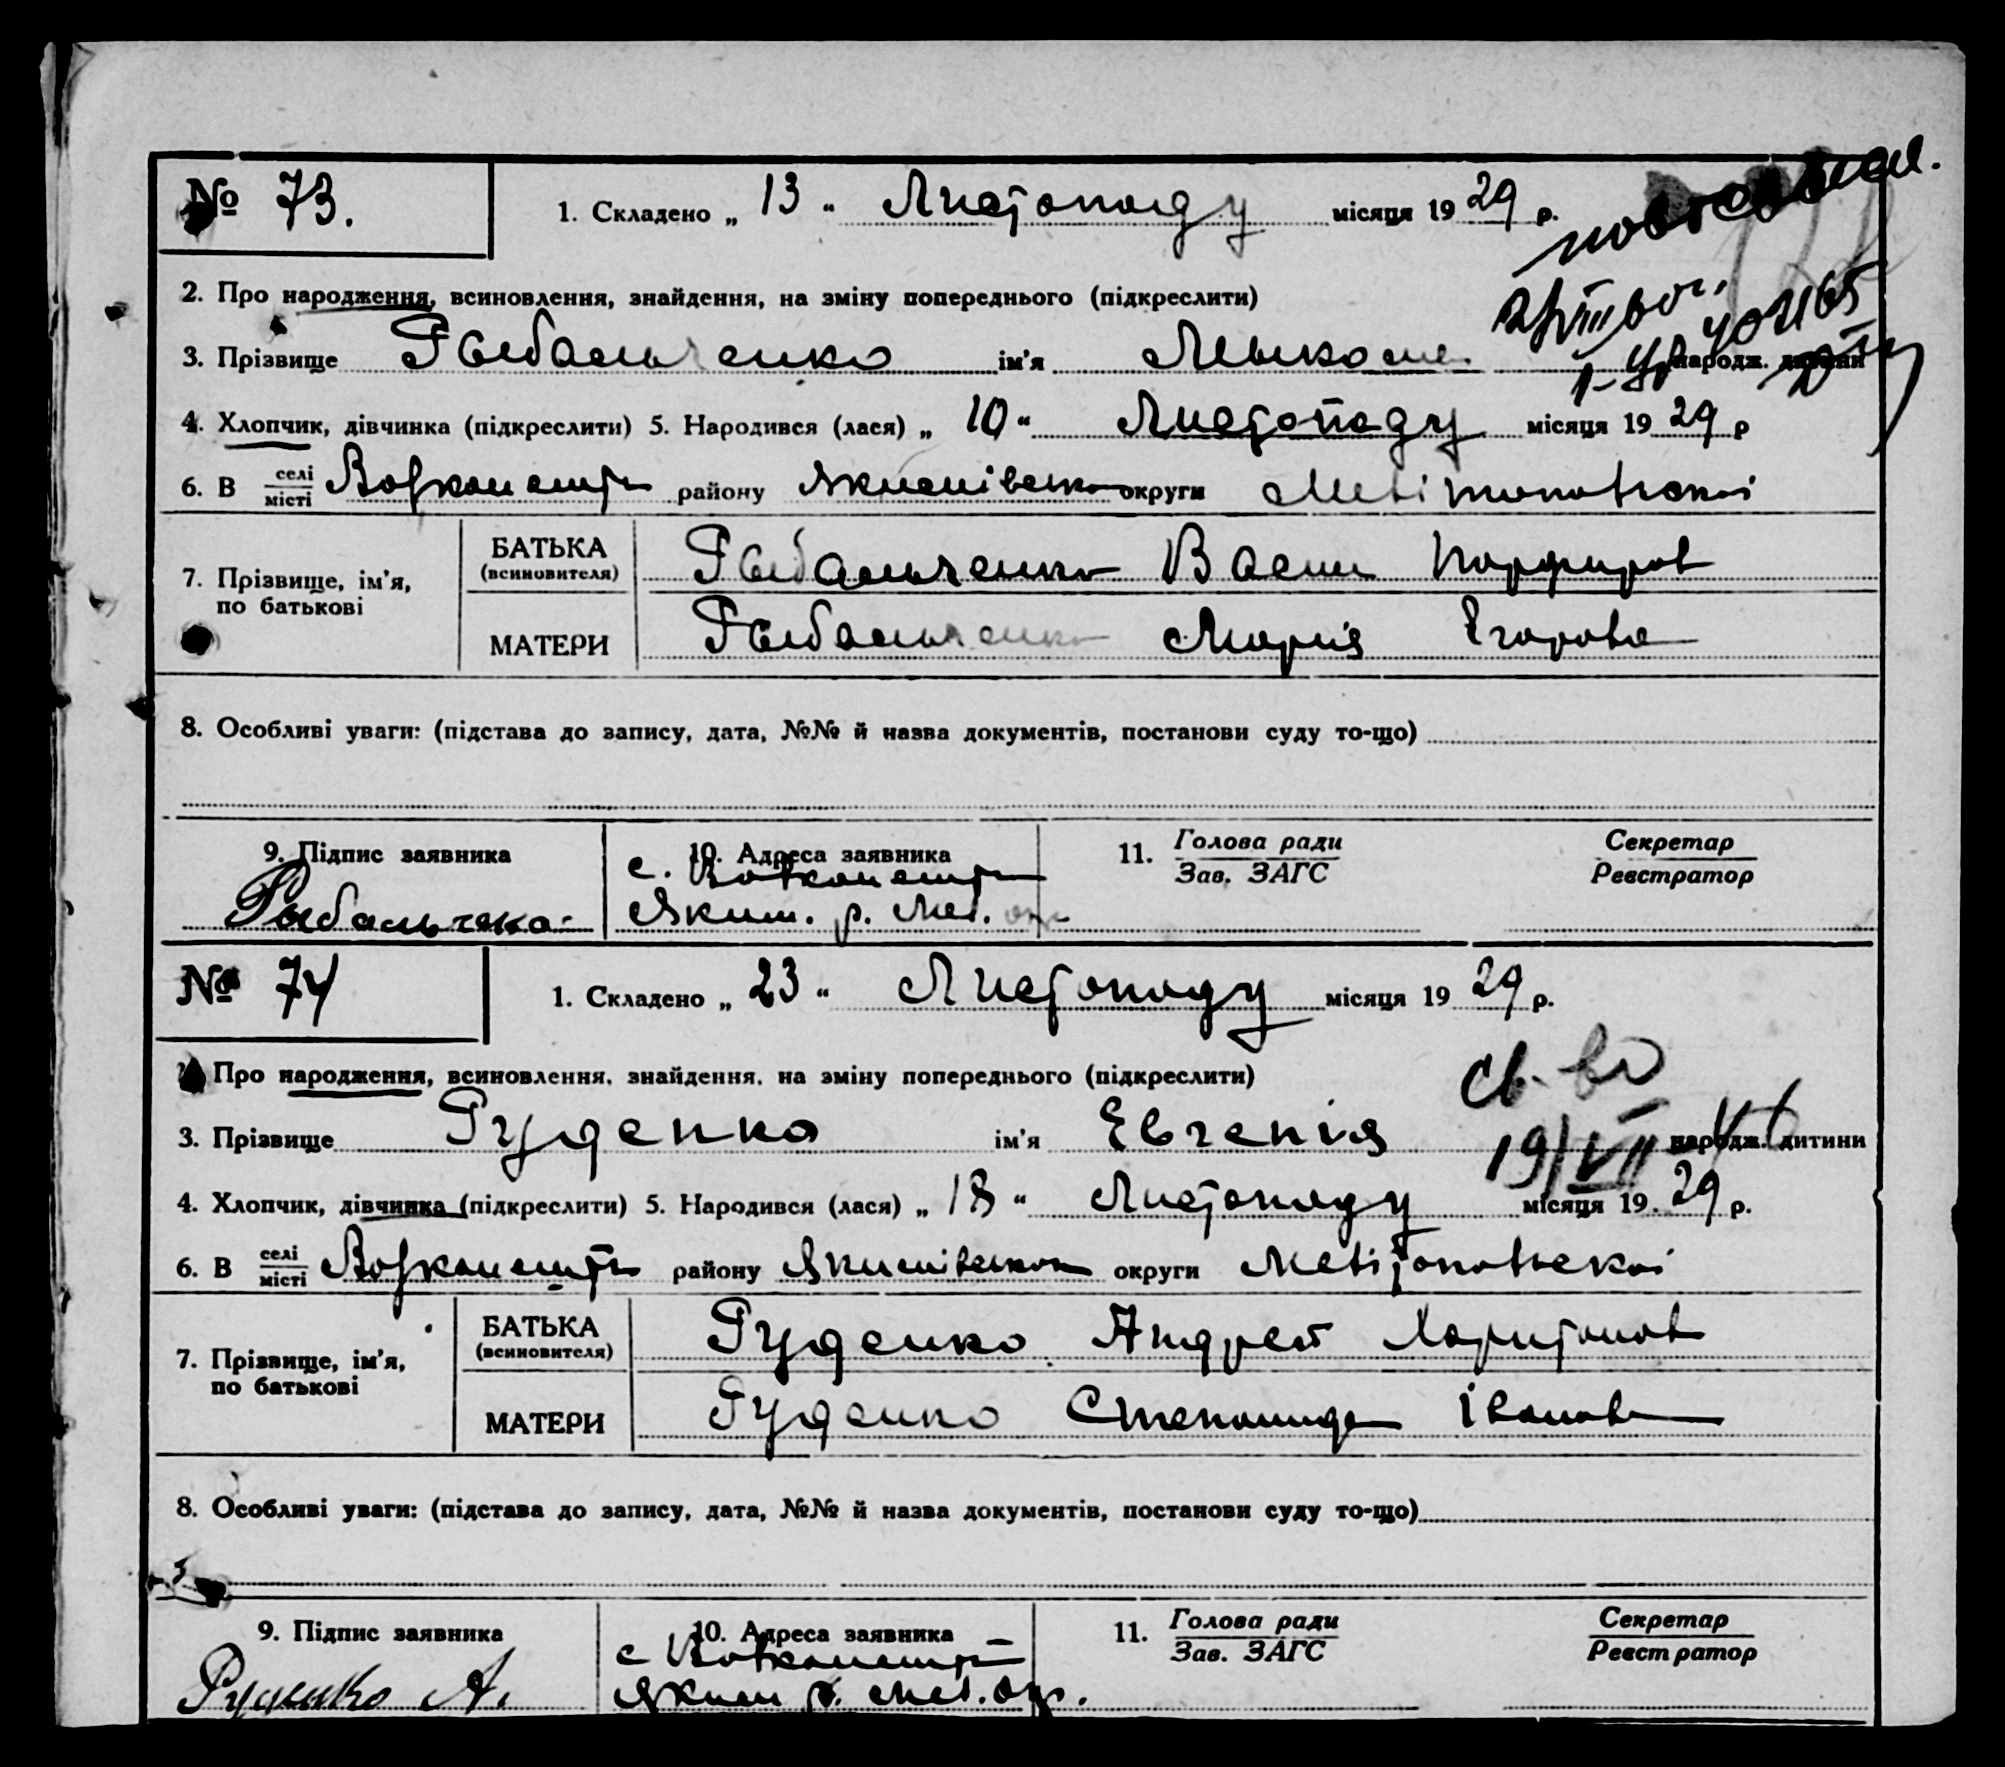 № 73. 1. Складено „ 13 “ Листопаду місяця 19 29 р.
2. Про народження, всиновлення, знайдення, на зміну попереднього (підкреслити)
3. Прізвище Рыбальченко ім'я народж. дитини
4. Хлопчик, дівчинка (підкреслити) 5. Народився (лася) „ 10 “ Листопаду місяця 19 29 р
6. В селі/місті району округи
7. Прізвище, ім'я, по батькові
БАТЬКА (всиновителя) Рыбальченко Васил Порфиров
МАТЕРИ Рыбальченко Марія Егорова
8. Особливі уваги: (підстава до запису, дата, №№ й назва документів, постанови суду то-що)
9. Підпис заявника 10. Адреса заявника 11. Голова ради Секретар
Зав. ЗАГС Реєстратор
Яким. р. Мел.
№ 74 1. Складено „ 23 “ Листопаду місяця 19 29 р.
Про народження, всиновлення, знайдення, на зміну попереднього (підкреслити)
св-во
3. Прізвище Руденко ім'я Евгенія народж. дитини
19/VII
4. Хлопчик, дівчинка (підкреслити) 5. Народився (лася) „ 18 “ Листопаду місяця 19 29 р.
6. В селі/місті району округи
7. Прізвище, ім'я, по батькові
БАТЬКА (всиновителя) Руденко Андрей Харитонов
МАТЕРИ Руденко Степанида Іванов
8. Особливі уваги: (підстава до запису, дата, №№ й назва документів, постанови суду то-що)
9. Підпис заявника 10. Адреса заявника 11. Голова ради Секретар
Зав. ЗАГС Реєстратор
Руденко А. Яким р. Мел. окр.